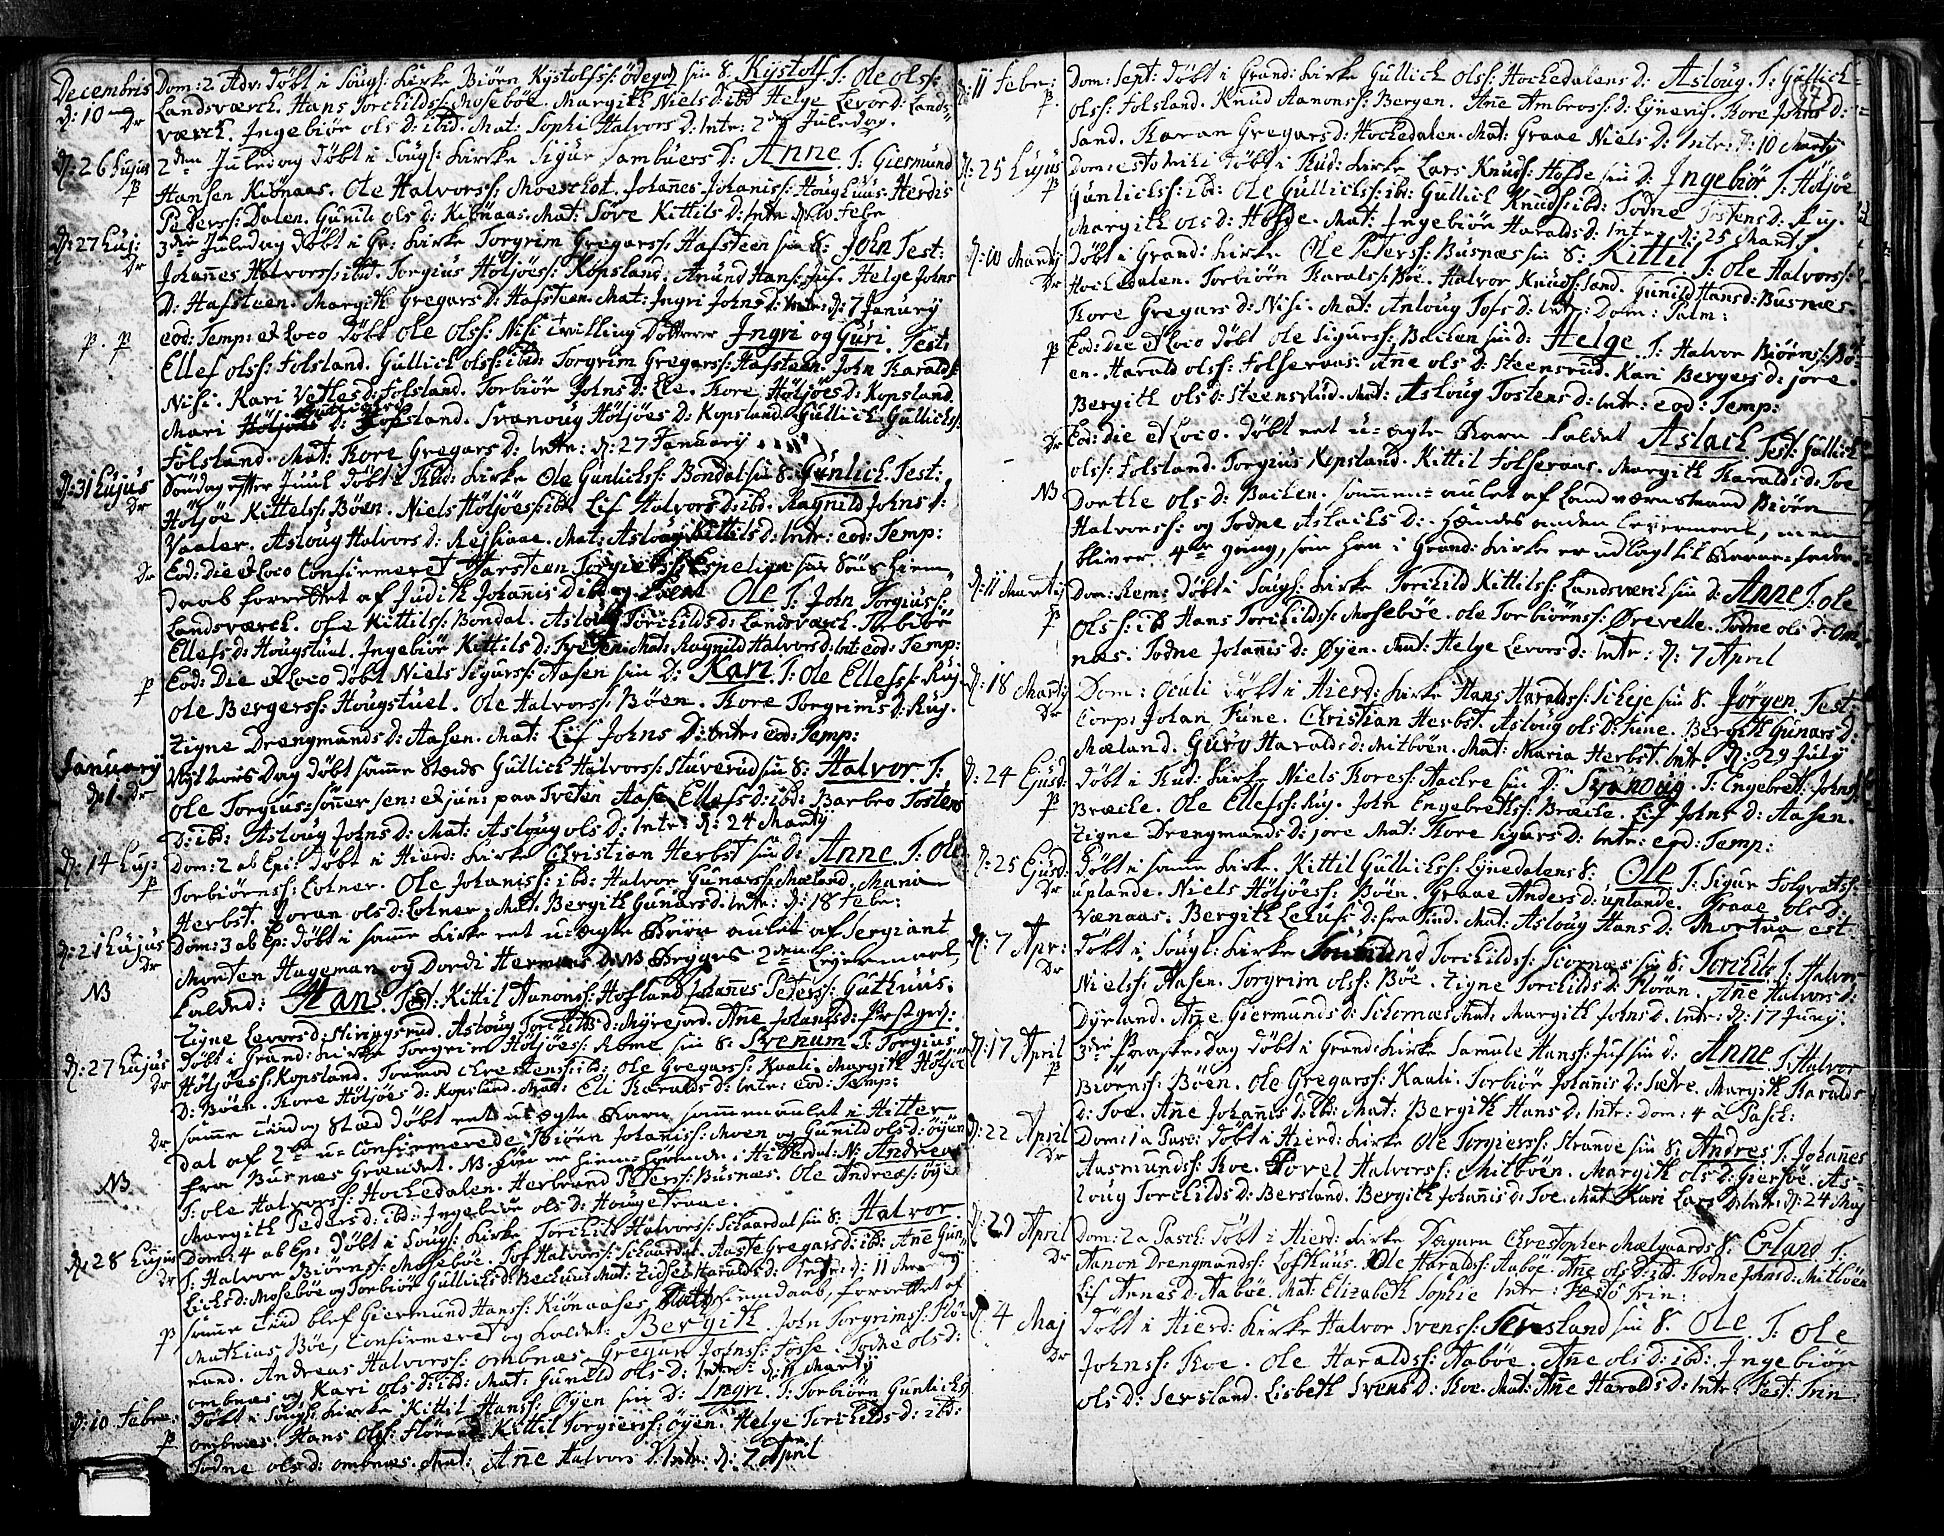 Decembris Dom: 2 Adv: döbt i Sougl: Kirke Biörn Kystolfs: Ödegrd sin S: Kystolf T: Ole Ols:
D: 10 Dr Landsværck. Hans Torchilds: Moseböe. Margith Niels D: ibd Helge Levor D: Lands
værck. Ingebiör Ols D: ibid: Mat: Sophi Halvors D: Intr: 2den Juledag.
D: 26 hujus 2den Juledag döbt i Sougl: Kirke Sigur Sambuers D: Anne T: Giermund
p Hansen Kiönaas. Ole Halvors: Moerchol. Johañes Johanis: Houghuus. Herdis
Peders: Dalen. Gunild Ols D: Kiönaas. Mat: Söve Kittils D: Intr:
D: 27 huj: 3die Juledag döbt i Gr: Kirke Torgrim Gregars: Hafsteen sin S: John Test:
Dr Johañes Halvors: ibid. Torgius Höljöes: Kopsland. Anund Hans: Juf. Helge Johns
D: Hafsteen. Margith Gregars D: Hafsteen. Mat: Ingri Johns D: Intr: D: 7 January
p. p eod: Temp: et Loco döbt Ole Ols: Nisi Tvilling Döttrer Ingri og Guri. Test:
Ellef Ols: Folsland. Gullich Ols: ibid: Torgrim Gregars: Hafsteen. John Haralds:
Nisi. Kari Vetles D: Folsland. Torbiör Johns D: Lie. Kore Höljöes D: Kopsland.
Mari D: Kopsland. Svanoug Höljöes D: Kopsland. Gullich Gullichs:
Folsland. Mat: Kore Gregars D: Intr: D: 27 January
D: 31 hujus Söndag efter Juul döbt i Rud: Kirke Ole Gunlichs: Bondal sin S: Gunlich Test:
Dr Höljöe Kittels: Böen. Niels Höljöes: ibd. Lif Halvors D: ibd. Ragnild Johns D:
Vaaler. Asloug Halvors D: Rejsaae. Mat: Asloug Kittils D: Intr: eod: Temp:
Dr Eod: Die et Loco Confirmeret Tarsteen Torgiers: Espelien sin Söns hiem
daab forrettet af Judith Johañis D: ibd og kaldt Ole T: John Torgius:
Landsværck. Ole Kittils: Bondal. Asloug Torchilds D: Landsværck. Torbiör
Ellefs D: Hougstuel. Ingebiör Kittils D: Mat: Ragnild Halvors D: Int: eod: Temp:
p Eod: Die et Loco döbt Niels Sigurs: Aasen sin D: Kari T: Ole Ellefs: Rug.
Ole Bergers: Hougstuel. Ole Halvors: Böen. Kore Torgrims D: Rug.
Zigne Drengmands D: Aasen. Mat: Lif Johns D: Intr: eod: Temp:
January Nyt Aars Dag döbt samme Stæds Gullich Halvors: Stuverud sin S: Halvor. T:
D: 1 Dr Ole Torgius sönner sen: et jun: paa Treten Aase Ellefs D: ibd: Barbro Tostens
D: ibd: Asloug Johns D: Mat: Asloug Ols D: Intr: D: 24 Marty
D: 14 huj: Dom: 2 ab Epi: döbt i Hierd: Kirke Christian Herbst sin D: Anne T: Ole
p Torbiörns: Lolner. Ole Johanis: ibd: Halvor Gunars: Mæland. Maria
Herbst. Joran Ols D: Lolner. Mat: Bergith Gunars D: Intr: D: 18 Febr:
D: 21 hujus Dom: 3 ab Ep: döbt i samme Kirke eet u-ægte Barn aulet af Sergiant
Dr Morten Hageman og Dordi Hermans D: NB Begges 2den Leyermaal,
NB kaldet: Hans Test: Kittil Aanons: Hofland Johañes Peders: Guthuus.
Zigne Levors D: Skringsrud. Asloug Torchilds D: Myrejord. Añe Johañis D: Prestgrd:
D: 27 hujus döbt i Grand: Kirke Torgrim Höljöes: Rome sin S: Svenum T: Torgius
Dr Höljöes: Kopsland. Tormod Christens: ibd: Ole Gregars: Kaali. Margith Höljöe
D: Böen. Kore Höljöes D: Kopsland. Mat: Eli Haralds D: Intr: eod: Temp:
Dr samme Tiid og Stæd döbt eet u-ægte Barn sammenaulet i Hitter
dal af 2de u-Confirmerede Biörn Johanis: Moen og Gunild Ols D: Öyen
NB fra Busnes Grændet. NB: som er hiemhörende i Hitterdal: N: Andreas
T: Ole Halvors: Hockedalen. Herbrand Peders: Busnæs. Ole Andreas: Öyen
Margith Peders D: ibd: Ingebiör Ols D: Hougetvaae.
D: 28 hujus Dom: 4 ab Ep: döbt i Sougl: Kirke Torchild Halvors: Schaardal sin S: Halvor
Dr T: Halvor Biörns: Moseböe. Tof Halvors: Schaardal. Aaste Gregars D: ibd: Añe Gun
lichs D: Moseböe og Torbiör Gullichs D: Bechuus Mat: Zidsel Haralds D: Intr: D: 11 Marty
p samme Tiid blef Giermund Hans: Kiönaases hiemdaab, forrettet af
Mathias Böe, Confirmeret og kaldet: Bergith. John Torgrims: Flöe
mand. Andreas Halvors: Ombnæs. Gregar Johns: Fosse. Todne Ols D:
Ombnæs og Kari Ols D: ibd: Mat: Gunild Ols D: Intr: D: 11 Marty
D: 10 Febr: döbt i Sougl: Kirke Kittil Hans: Öyen sin D: Ingri. T: Torbiörn Gunlichs
p Ombnæs. Hans Ols: Kittil Torgiers: Öyen. Helge Torchilds D: ibd:
Todne Ols D: Ombnæs. Mat: Añe Halvors D: Intr: D: 7 April
87
D: 11 Febr: Dom: Sept: döbt i Grand: Kirke Gullich Ols: Hockedalens D: Asloug. T: Gullich
p Ols: Folsland. Knud Aanons: Bergen. Añe Ambros: D: Lynevis. Kore Johns D:
Sand. Karan Gregars D: Hockedalen. Mat: Graae Niels D: Intr: D: 10 Marty
D: 25 hujus Dom: esto mihi döbt i Rud: Kirke Lars Knuds: Hofde sin D: Ingebiör T: Höljöe
p Gunlichs: ibd: Ole Gullichs: ibd: Gullich Knuds: ibd: Todne Tostens D: Rug.
Margith Ols D: Hofde. Mat: Ingebiör Haralds D: Intr: D: 25 Marty.
D: 10 Marty döbt i Grand: Kirke Ole Peters: Busnæs sin S: Kittil T: Ole Halvors:
Dr Hockedalen. Torbiörn Haralds: Böe. Halvor Knuds: Sand. Gunild Hans D: Busnæs.
Kore Gregars D: Nisi. Mat: Anloug Tofs D: Intr: Dom: Palm:
p Eod: die et Loco döbt Ole Sigurs: Backen sin D: Helge T: Halvor Biörns: Bö
en. Harald Ols: Folseraas. Añe Ols D: Steensrud. Kari Bergers D: Jore.
Bergith Ols D: Steensrud. Mat: Asloug Tostens D: Intr: eod: Temp:
Dr Eod: die et Loco. döbt eet u-ægte Barn kaldet Aslach Test: Gullich
Ols: Folsland. Torgius Kopsland. Kittil Folseraas. Margith Haralds D: Toe
NB Dorthe Ols D: Backen. sammen-aulet af Landværnsmand Biörn
Halvors: og Todne Aslachs D: hændes anden Leyermaal, men
bliver 4de gang, som han i Grand: Kirke er udlagt til Barne-fader.
D: 11 Marty Dom: Rem: döbt i Sougl: Kirke Torchild Kittils: Landsværch sin D: Anne T: Ole
p Ols: ibd Hans Torchilds: Moseböe. Ole Torbiörns: Ørevelle. Todne Ols D: Om
næs. Todne Johañis D: Øyen. Mat: Helge Levors D: Intr: D: 7 April
D: 18 Marty Dom: Oculi döbt i Hierd: Kirke Hans Haralds: Scheje sin S: Jørgen. Test:
Dr Corp: Johan Fune. Christian Herbst. Asloug Ols D: Fune. Bergith Gunars D:
Mæland. Gurv Haralds D: Mitböen. Mat: Maria Herbst. Intr. D: 29 July
D: 24 Ejusd: döbt i Rud: Kirke Niels Kores: Aackre sin D: Synnoug. T: Engebret Johns:
p Bræche. Ole Ellefs: Rug. John Engebreths: Bræche. Lif Johns D: Aasen.
Zigne Drengmands D: Jore Mat: Kore Sigurs D: Intr: eod: Temp:
D: 25 Ejusd: döbt i samme Kirke. Kittil Gullichs: Lynedalens S: Ole T: Sigur Folqvats:
Dr uplande. Niels Höljöes: Böen. Graae Anders D: uplande. Graae Ols D:
Vænaas. Bergith Leeufs D: fra Tind. Mat: Asloug Hans D: Mortua est.
D: 7 Apr: döbt i Sougl: Kirke Torchilds: sin S: Torchild T: Halvor
Dr Niels: Aasen. Torgrim Ols: Böe. Zigne Torchilds D: Floran. Añe Halvors D:
Dyrland. Añe Giermunds D: Mat: Margith Johns D. Intr: D: 17 Juny.
D: 17 April 3die Paaskedag döbt i Grand: Kirke Samule Hans: Juf sin D: Anne T: Halvor
p Biörns: Böen. Ole Gregars: Kaali. Torbiör Johañis D: Sætre. Margith Haralds
D: Toe. Añe Johañis D: ibd: Mat: Bergith Hans D: Intr: Dom: 4 a Pasc:
D: 22 April Dom: 1 a Pasc: döbt i Hierd: Kirke Ole Torgiers: Strande sin S: Andres T: Johañes
Dr Aasmunds: Koe. Povel Halvors: Mitböen. Margith Ols D: Gierjöe. As
loug Torchilds D: Bersland. Bergith Johañis D: Toe. Mat: Kari Lars D: Intr: D: 24 Maj
D: 29 April Dom: 2 a Pasch: döbt i Hierd: Kirke Degnen Christopher Mælgaards S: Erland T:
Dr Aanon Drengmands: Lofthuus. Ole Haralds: Aaböe. Añe Ols D: ibd. Todne Johns D: Mitböen
Lif Annes D: Aaböe. Mat: Elizabeth Sophie Intr: Festo Trin:
D: 4 Maj döbt i Hierd: Kirke Halvor Svens: Seresland sin S: Ole T: Ole
Dr Johns: Koe. Ole Haralds: Aaböe. Añe Ols D: ibd: Ingebiör
Ols D: Seresland. Lisbeth Svens D: Koe. Mat: Añe Haralds D: Intr: Fest: Trin: